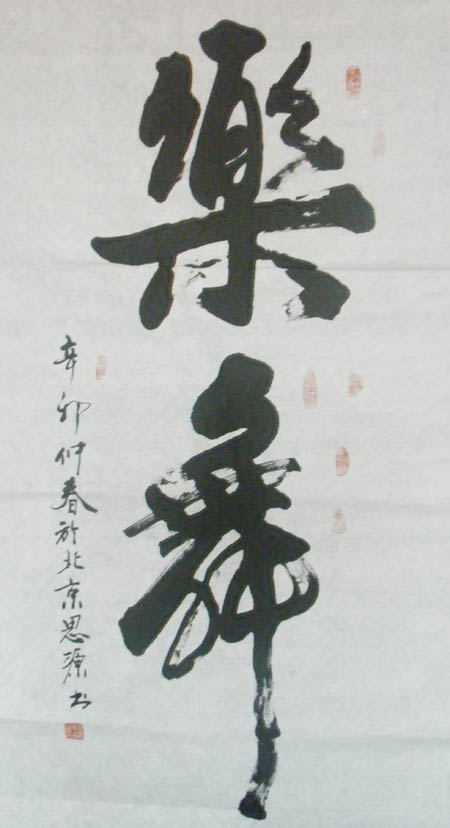 樂舞
辛卯仲春於北京思源书